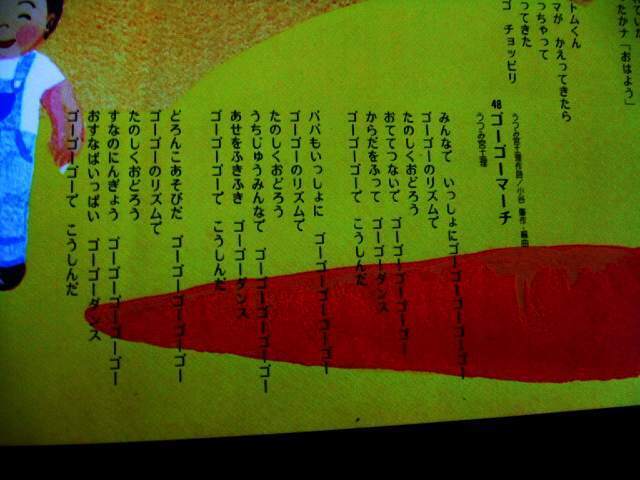 ていた
たかナ「おはよう」
トムくん
マが かえってきたら
っちゃって
ってきた
ゴ チョッピリ
48 ゴーゴーマーチ
みんなで いっしょに ゴーゴーゴーゴーゴーゴー
ゴーゴーのリズムで
たのしくおどろう
おててつないで ゴーゴーゴーゴーゴーゴー
からだをふって ゴーゴーダンス
ゴーゴーゴーで こうしんだ
パパもいっしょに ゴーゴーゴーゴーゴーゴー
ゴーゴーのリズムで
たのしくおどろう
うちじゅうみんなで ゴーゴーゴーゴーゴーゴー
あせをふきふき ゴーゴーダンス
ゴーゴーゴーで こうしんだ
どろんこあそびだ ゴーゴーゴーゴーゴーゴー
ゴーゴーのリズムで
たのしくおどろう
すなのにんぎょう ゴーゴーゴーゴーゴーゴー
おすなばいっぱい ゴーゴーダンス
ゴーゴーゴーで こうしんだ